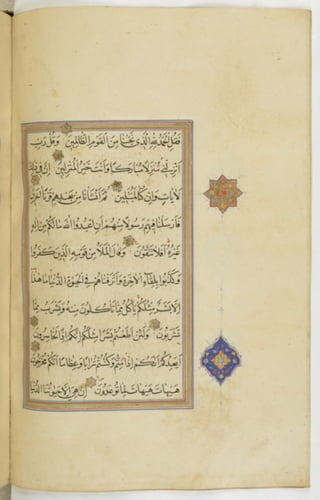 فقل الحمد لله الذي نجينا من القوم الظالمين وقل رب
انزلني منزلا مباركا وانت خير المنزلين ان في ذلك
لآيات وان كنا لمبتلين ثم انشأنا من بعدهم قرنا آخرين
فارسلنا فيهم رسولا منهم ان اعبدوا الله ما لكم من اله
غيره افلا تتقون وقال الملأ من قومه الذين كفروا
وكذبوا بلقاء الآخرة واترفناهم في الحيوة الدنيا ما هذا
الا بشر مثلكم يأكل مما تأكلون منه ويشرب مما
تشربون ولئن اطعتم بشرا مثلكم انكم اذا لخاسرون
ايعدكم انكم اذا متم وكنتم ترابا وعظاما انكم مخرجون
هيهات هيهات لما توعدون ان هي الا حيوتنا الدنيا